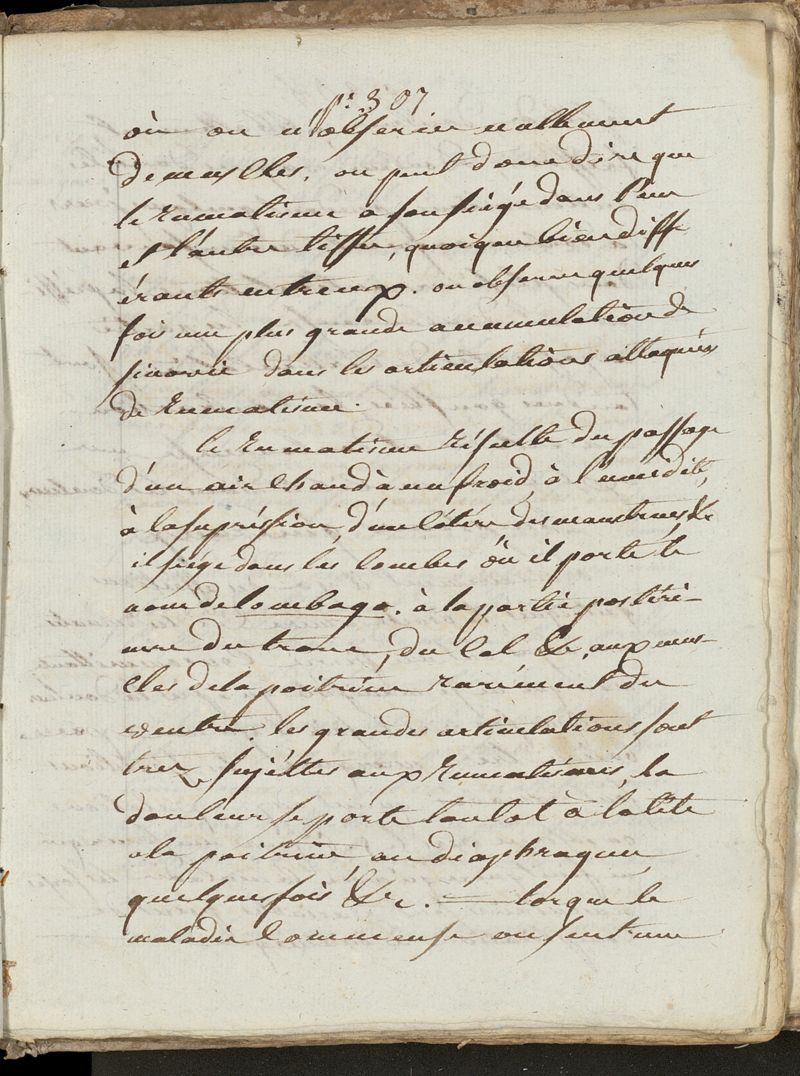 pr. 307
où on n'observe nullement
de muscles. on peut donc dire que
le rumatisme a son siége dans l'un
et l'autre tissu, quoique bien diff
érants entreeux. on observe quelques
fois une plus grande accumulation de
sinovie dans les articulations attaquées
de rumatisme.
le rumatisme résulte du passage
d'un air chaud à un froid, à l'umidité,
à la supréssion, d'un des menstrues, &c
il siége dans les lombes où il porte le
nom de lombago. à la partie postéri-
eure du tronc, du col &c, aux mus-
cles de la poitrine rarement du
ventre. les grandes articulations sont
tres sujéttes aux rumatismes, la
douleur se porte tantot à la tête
a la poitrine, au diaphragme,
quelquesfois &c. — lorque la
maladie commence on sent une